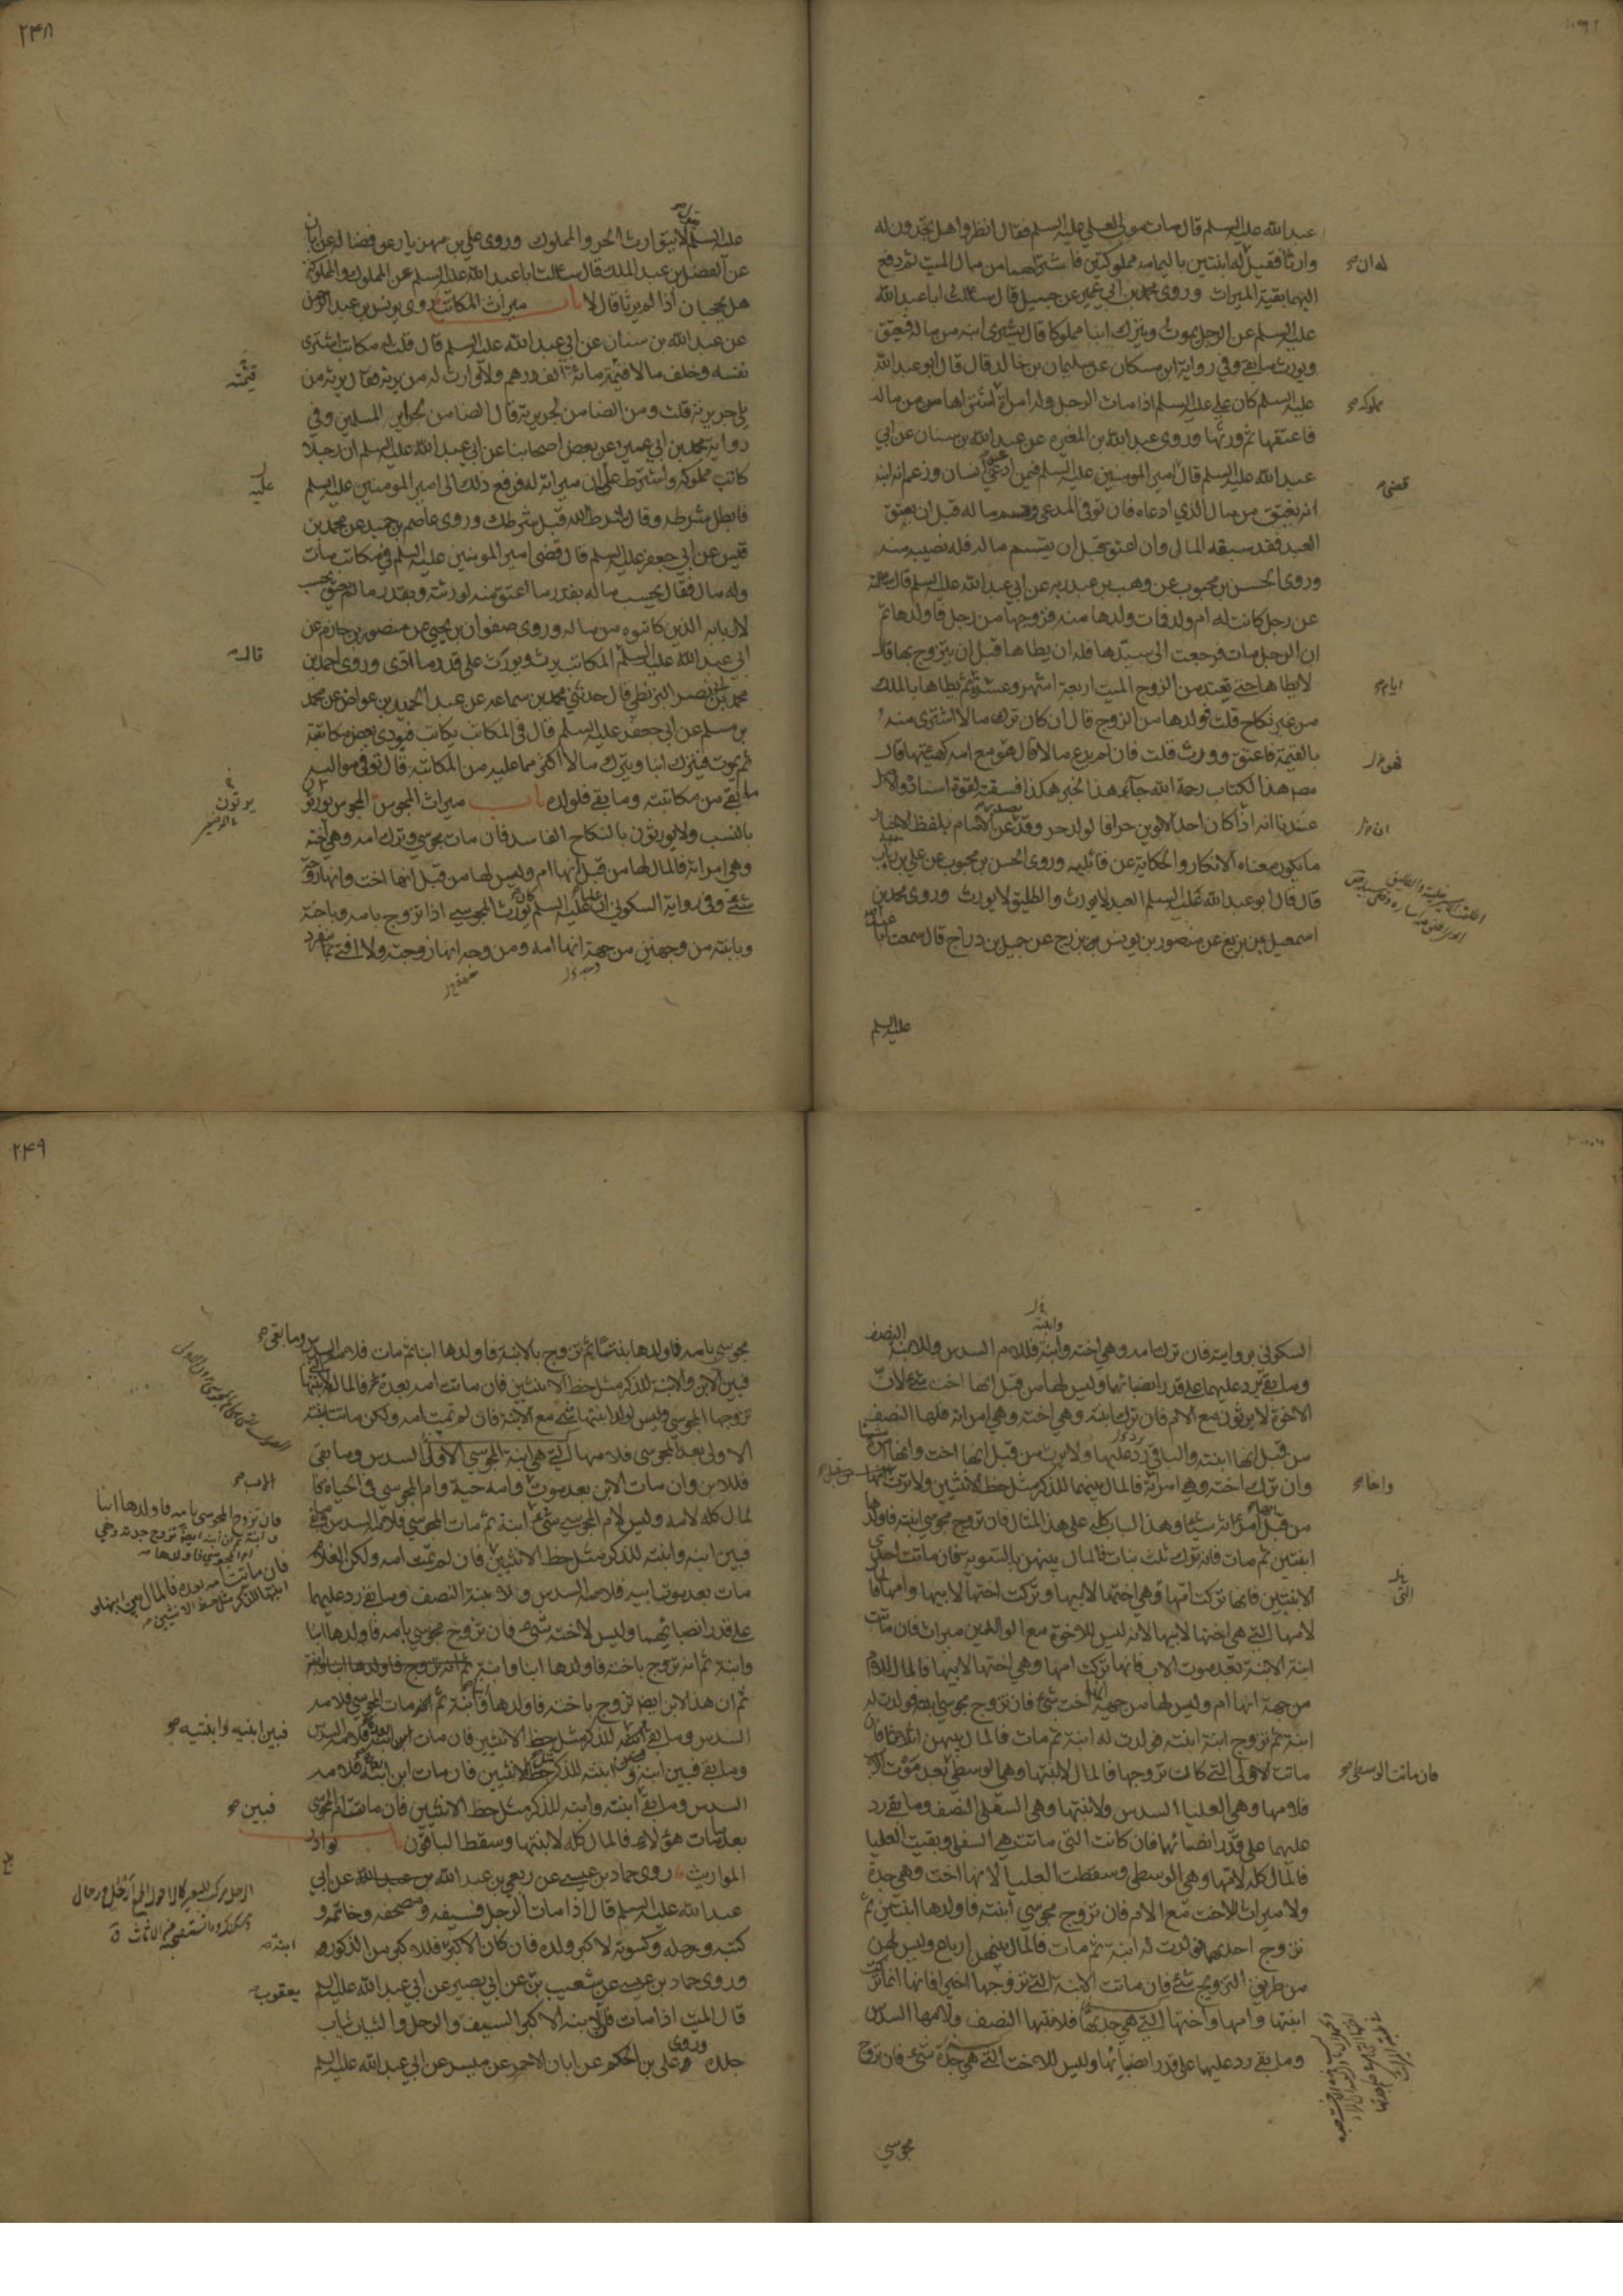 عبد الله عليه السلم قال مات مولى لعلي عليه السلم فقال انظروا هل تجدون له
وارثا فقيل له ابنتين باليمامة مملوكتين فاشتراهما من مال الميت ثم دفع
اليهما بقية الميراث وروى محمد بن ابي عمير عن جميل قال سالت ابا عبد الله
عليه السلم عن الرجل يموت ويترك ابنا مملوكا قال يشترى ابنه من ماله فيعتق
ويورث ما بقي وفي رواية ابن مسكان عن سليمان بن خالد قال قال ابو عبد الله
عليه السلم كان علي عليه السلم اذا مات الرجل وله امراة اشتراها من ماله
فاعتقها ثم ورثها وروى عبد الله بن المغيرة عن عبد الله بن سنان عن ابي
عبد الله عليه السلم قال امير المومنين عليه السلم فيمن ادعى عبد انسان وزعم انه ابنه
انه يعتق من مال الذي ادعاه فان توفى المدعى وقسم ماله قبل ان يعتق
العبد فقد سبقه المال وان اعتق قبل ان يقتسم ماله فله نصيبه منه
وروى الحسن بن محبوب عن وهب بن عبد ربه عن ابي عبد الله عليه السلم قال سالته
عن رجل كانت له ام ولد فمات ولدها منه فزوجها من رجل فاولدها ثم
ان الرجل مات فرجعت الى سيدها فله ان يطاها قبل ان يتزوج بها قال
لا يطاها حتى تعتد من الزوج الميت اربعة اشهر وعشرة ثم يطاها بالملك
من غير نكاح قلت فولدها من الزوج قال ان كان ترك مالا اشترى منه
بالقيمة فاعتق وورث قلت فان لم يدع مالا قال هو مع امه كهيئتها قال
مصنف هذا الكتاب رحمة الله جاء هذا الخبر هكذا فسقته لقوة اسناده والاصل
عندنا انه اذا كان احد الابوين حرا فالولد حر وقد يصدر عن الامام بلفظ الاخبار
ما يكون معناه الانكار والحكاية عن قائليه وروى الحسن بن محبوب عن علي بن رئاب
قال قال ابو عبد الله عليه السلم العبد لا يورث والطليق لا يورث وروى محمد بن
اسمعيل بن بزيع عن منصور بن يونس بن بزرج عن جميل بن دراج قال سمعت ابا عبد الله
له ان
مملوكة
قضى
ايام
فهو
ان
عليه السلم
٢٤٨
عليه السلم يقول لا يتوارث الحر والمملوك وروى علي بن مهزيار عن فضالة عن ابان
عن الفضل بن عبد الملك قال سالت ابا عبد الله عليه السلم عن المملوك والمملوكة
هل يحجبان اذا لم يرثا قال لا باب ميراث المكاتب روى يونس بن عبد الرحمن
عن عبد الله بن سنان عن ابي عبد الله عليه السلم قال قلت له مكاتب اشترى
نفسه وخلف مالا قيمته مائة الف درهم ولا وارث له من يرثه فقال يرثه من
يلي جريرته قلت ومن الضامن لجريرته قال الضامن لجراير المسلمين وفي
رواية محمد بن ابي عمير عن بعض اصحابنا عن ابي عبد الله عليه السلم ان رجلا
كاتب مملوكه واشترط عليه ان ميراثه له فرفع ذلك الى امير المومنين عليه السلم
فابطل شرطه وقال شرط الله قبل شرطك وروى عاصم بن حميد عن محمد بن
قيس عن ابي جعفر عليه السلم قال قضى امير المومنين عليه السلم في مكاتب مات
وله مال فقال يحسب ماله بقدر ما اعتق منه لورثته وبقدر ما لم يعتق يحسب
لاربابه الذين كاتبوه من ماله وروى صفوان بن يحيى عن منصور بن حازم عن
ابي عبد الله عليه السلم المكاتب يرث ويورث على قدر ما ادى وروى احمد بن
محمد بن ابي نصر البزنطي قال حدثني محمد بن سماعة عن عبد الحميد بن عواض عن محمد
بن مسلم عن ابي جعفر عليه السلم قال في المكاتب يكاتب فيودي بعض مكاتبته
ثم يموت فيترك ابنا ويترك مالا اكثر مما عليه من المكاتبة قال توفي مواليه
ما بقي من مكاتبته وما بقي فلولده باب ميراث المجوس المجوس يورثون
بالنسب ولا يورثون بالنكاح الفاسد فان مات مجوسي وترك امه وهي اخته
وهي امراته فالمال لها من قبل انها ام وليس لها من قبل انها اخت وانها زوجة
شئ وفي رواية السكوني ان عليا عليه السلم كان يورث المجوسي اذا تزوج بامه وباخته
وبابنته من وجهين من جهة انها امه ومن وجه انها زوجته ولا افتى بما ينفرد
قيمته
عليه
قال
يورثون
السكوني بروايته فان ترك امه وهي اخته وابنة فللام السدس وللابنة النصف
وما بقي يرد عليهما على قدر انصبائهما وليس لها من قبل انها اخت شئ لان
الاخوة لا يرثون مع الام فان ترك ابنته وهي اخته وهي امراته فلها النصف
من قبل انها ابنته والباقي رد عليها ولا يرث من قبل انها اخت وانها امراته شيئا
وان ترك اخته وهي امراته فالمال بينهما للذكر مثل حظ الانثيين ولا ترث
من قبل انها امراته شيئا وهذا الباب كله على هذا المثال فان تزوج مجوسي ابنته فاولدها
ابنتين ثم مات فانه ترك ثلث بنات فالمال بينهن بالسوية فان ماتت احدى
الابنتين فانها تركت امها وهي اختها لابيها وتركت اختها لابيها وامها فالمال
لامها التي هي اختها لابيها لانه ليس للاخوة مع الوالدين ميراث فان ماتت
ابنة الابنة بعد موت الاب فانها تركت امها وهي اختها لابيها فالمال للام
من جهة انها ام وليس لها من جهة انها اخت شئ فان تزوج مجوسي ابنته فولدت له
ابنة ثم تزوج ابنة ابنته فولدت له ابنة ثم مات فالمال بينهن اثلاثا فان
ماتت الاولى التي كانت تزوجها فالمال لابنتها وهي الوسطى بعد موت الاب
فلامها وهي العليا السدس ولابنتها وهي السفلى النصف وما بقي رد
عليهما على قدر انصبائهما فان كانت التي ماتت هي السفلى وبقيت العليا
فالمال كله لامها وهي الوسطى وسقطت العليا لانها اخت وهي جدة
ولا ميراث للاخت مع الام فان تزوج مجوسي ابنته فاولدها ابنتين ثم
تزوج احديهما فولدت له ابنة ثم مات فالمال بينهن ارباع وليس لهن
من طريق التزويج شئ فان ماتت الابنة التي تزوجها اخيرا فانها انما تركت
ابنتها وامها واختها التي هي جدتها فلابنتها النصف ولامها السدس
وما بقي رد عليهما على قدر انصبائهما وليس للاخت التي هي جدة شئ فان تزوج
واخاه
التي
فان ماتت الوسطى
مجوسي
٢٤٩
مجوسي بامه فاولدها بنتا ثم تزوج بالابنة فاولدها ابنا ثم مات فلامه السدس وما بقي
فبين الابن والابنة للذكر مثل حظ الانثيين فان ماتت امه بعده فالمال لابنتها
تزوجها المجوسي وليس لولد ابنتها شئ مع الابنة فان لم تمت امه ولكن ماتت ابنته
الاولى بعد المجوسي فلامها التي هي ابنة المجوسي الاولى السدس وما بقي
فللابن وان مات الابن بعد موت وامه حية وام المجوسي في الحياة كان
المال كله لامه وليس لام المجوسي شئ ابنة ثم مات المجوسي فلامه السدس وما بقي
فبين ابنه وابنته للذكر مثل حظ الانثيين فان لم تمت امه ولكن الغلام
مات بعد موت ابيه فلامه السدس وللابنة النصف وما بقي رد عليهما
على قدر انصبائهما وليس لاخته شئ فان تزوج مجوسي بامه فاولدها ابنا
وابنة ثم انه تزوج باخته فاولدها ابنا وابنة
ثم ان هذا الابن ايضا تزوج باخته فاولدها ابنا وابنة ثم مات المجوسي فلامه
السدس وما بقي للذكر مثل حظ الانثيين فان مات ابن ابنته بعده فلامه السدس
وما بقي فبين ابنه وبين ابنته للذكر مثل حظ الانثيين فان مات ابن ابنه فلامه
السدس وما بقي ابنته وابنه للذكر مثل حظ الانثيين فان ماتت ام المجوسي
بعد ما مات هؤلاء فالمال كله لابنتها وسقط الباقون باب نوادر
المواريث روى حماد بن عيسى عن ربعي بن عبد الله عن ابي
عبد الله عليه السلم قال اذا مات الرجل فسيفه ومصحفه وخاتمه و
كتبه ورحله وكسوته لاكبر ولده فان كان الاكبر فللاكبر من الذكور
وروى حماد بن عيسى عن شعيب بن عن ابي بصير عن ابي عبد الله عليه السلم
قال الميت اذا مات فلابنه الاكبر السيف والرحل والثياب ثياب
جلده وروى علي بن الحكم عن ابان الاحمر عن ميسر عن ابي عبد الله عليه السلم
فان تزوج المجوسي بامه فاولدها ابنا
فان ماتت امه بعده فالمال بين ابنها و
ابنتها للذكر مثل حظ الانثيين
فبين ابنيه وابنتيه
فبين
ابنة
يعقوب